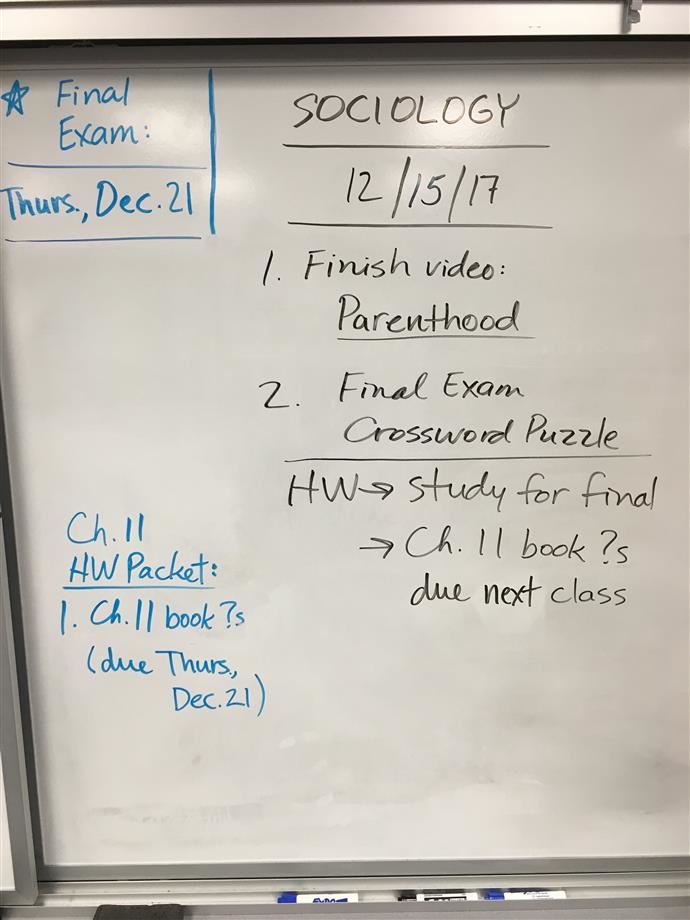 Final
Exam:
Thurs., Dec. 21
SOCIOLOGY
12/15/17
1. Finish video:
Parenthood
2. Final Exam
Crossword Puzzle
HW → study for final
→ Ch. 11 book ?s
due next class
Ch. 11
HW Packet:
1. Ch. 11 book ?s
(due Thurs.,
Dec. 21)
EXPO